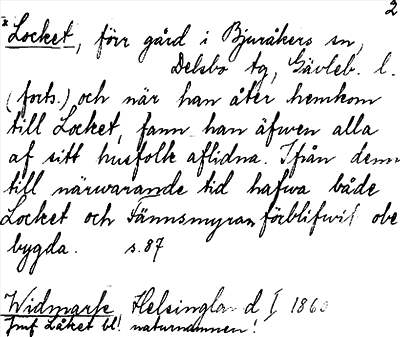 2
*Locket, förr gård i Bjuråkers sn,
Delsbo tg, Gävleb. l.
(forts.) och när han åter hemkom
till Locket, fann han äfwen alla
af sitt husfolk aflidna. Ifrån denna
till närwarande tid hafwa både
Locket och Fännsmyran förblifwit obe
bygda. s. 87
Widmark, Helsingland I 1860
Jmf Låket bl. naturnamnen!